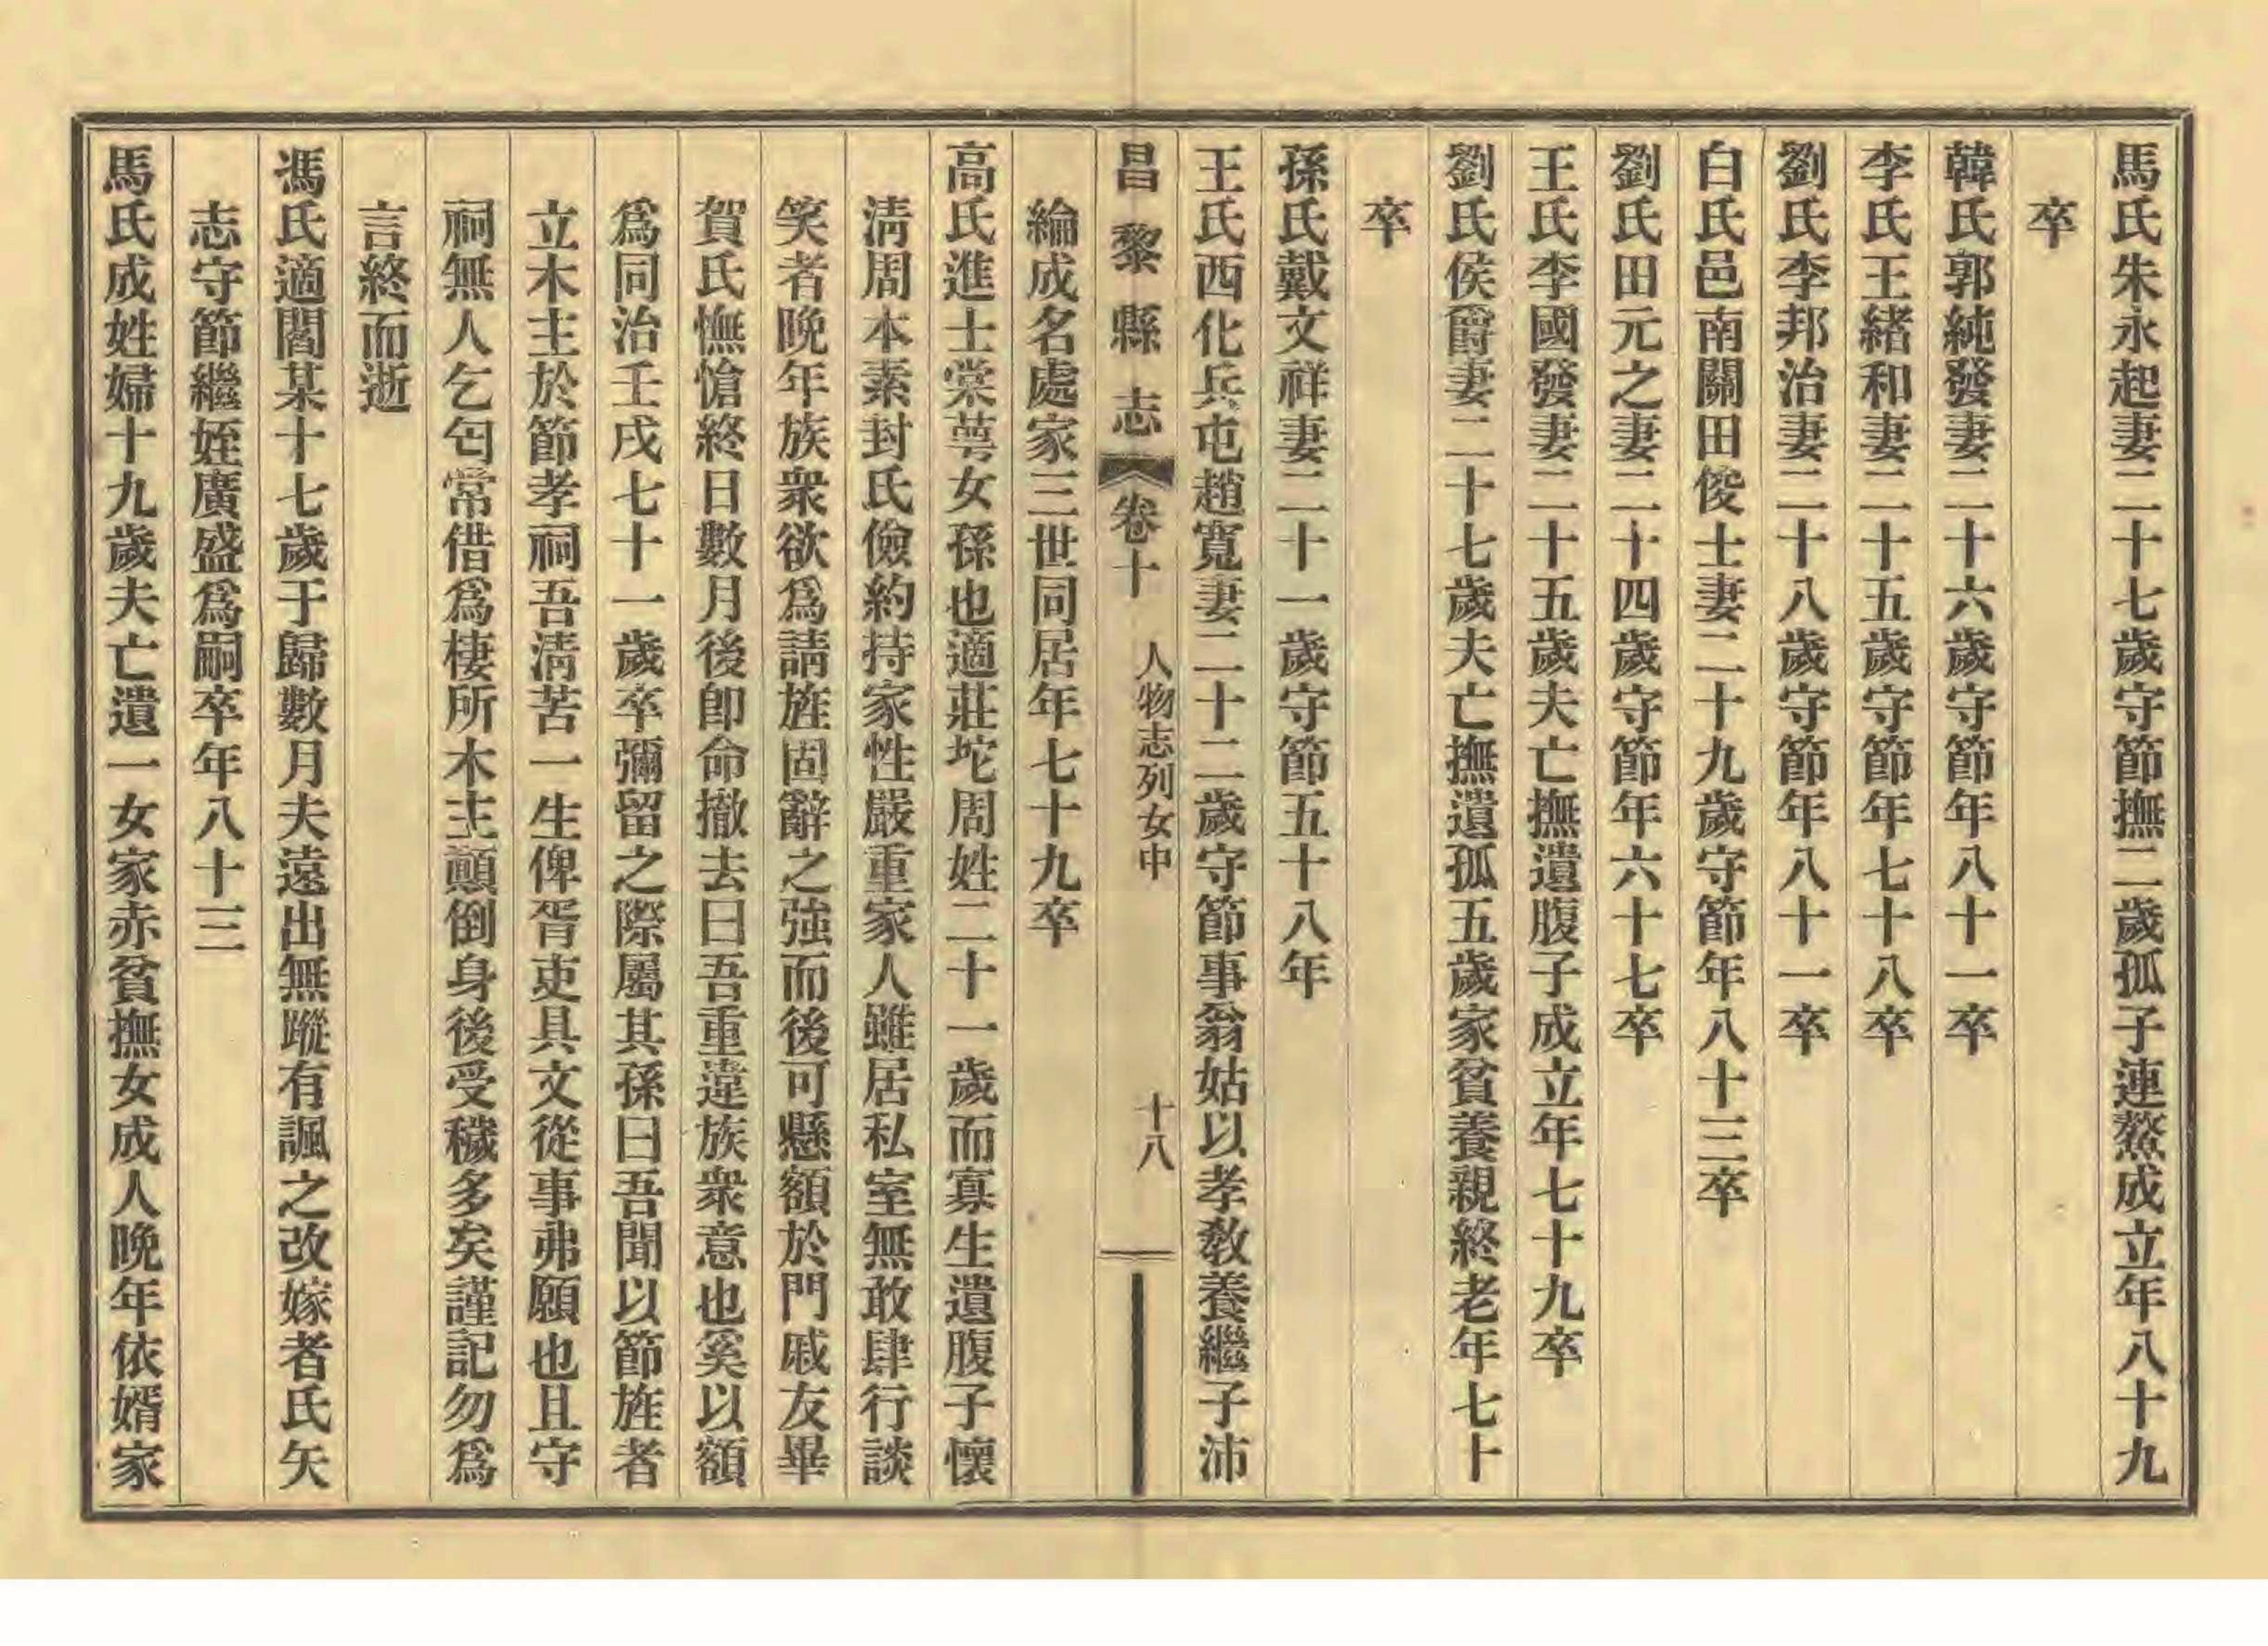 馬氏朱永起妻二十七歲守節撫二歲孤子連鰲成立年八十九
卒
韓氏郭純發妻二十六歲守節年八十一卒
李氏王緒和妻二十五歲守節年七十八卒
劉氏李邦治妻二十八歲守節年八十一卒
白氏邑南關田俊士妻二十九歲守節年八十三卒
劉氏田元之妻二十四歲守節年六十七卒
王氏李國發妻二十五歲夫亡撫遺腹子成立年七十九卒
劉氏侯爵妻二十七歲夫亡撫遺孤五歲家貧養親終老年七十
卒
孫氏戴文祥妻二十一歲守節五十八年
王氏西化兵屯趙寬妻二十二歲守節事翁姑以孝教養繼子沛
昌黎縣志 卷十 人物志列女中 十八
綸成名處家三世同居年七十九卒
高氏進士棠萼女孫也適莊坨周姓二十一歲而寡生遺腹子懷
清周本素封氏儉約持家性嚴重家人雖居私室無敢肆行談
笑者晚年族衆欲爲請旌固辭之強而後可懸額於門戚友畢
賀氏憮愴終日數月後卽命撤去曰吾重違族衆意也奚以額
爲同治壬戌七十一歲卒彌留之際屬其孫曰吾聞以節旌者
立木主於節孝祠吾清苦一生俾胥吏具文從事弗願也且守
祠無人乞匄常借爲棲所木主顚倒身後受穢多矣謹記勿爲
言終而逝
馮氏適閻某十七歲于歸數月夫遠出無蹤有諷之改嫁者氏矢
志守節繼姪廣盛爲嗣卒年八十三
馬氏成姓婦十九歲夫亡遺一女家赤貧撫女成人晚年依婿家